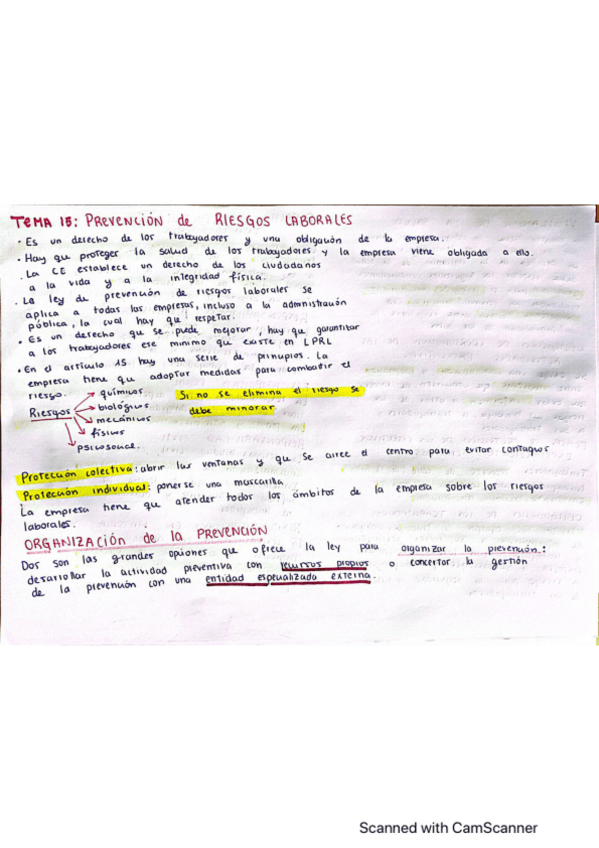 TEMA 15: PREVENCIÓN de RIESGOS LABORALES
· Es un derecho de los trabajadores y una obligación de la empresa.
· Hay que proteger la salud de los trabajadores y la empresa viene obligada a ello.
· La CE establece un derecho de los ciudadanos
a la vida y a la integridad física.
· La ley de prevención de riesgos laborales se
aplica a todas las empresas, incluso a la administración
pública, la cual hay que respetar.
· Es un derecho que se puede mejorar, hay que garantizar
a los trabajadores ese mínimo que existe en LPRL
· En el artículo 15 hay una serie de principios. La
empresa tiene que adoptar medidas para combatir el
riesgo.
Riesgos
químicos
biológicos
mecánicos
físicos
psicosocial.
Si no se elimina el riesgo se
debe minorar
Protección colectiva: abrir las ventanas y que se airee el centro para evitar contagios
Protección individual: ponerse una mascarilla
La empresa tiene que atender todos los ámbitos de la empresa sobre los riesgos
laborales.
ORGANIZACIÓN de la PREVENCIÓN
Dos son las grandes opciones que ofrece la ley para organizar la prevención:
desarrollar la actividad preventiva con recursos propios o concertar la gestión
de la prevención con una entidad especializada externa.
Scanned with CamScanner